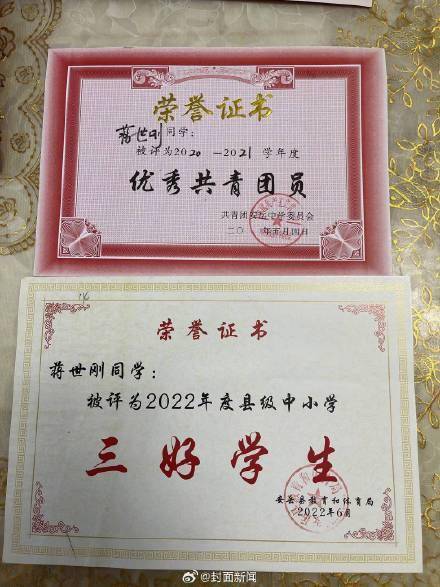 荣誉证书
蒋世刚同学：
被评为2020—2021学年度
优秀共青团员
共青团安岳中学委员会
二〇 年五月四日
荣誉证书
蒋世刚同学：
被评为2022年度县级中小学
三好学生
安岳县教育和体育局
2022年6月
@封面新闻